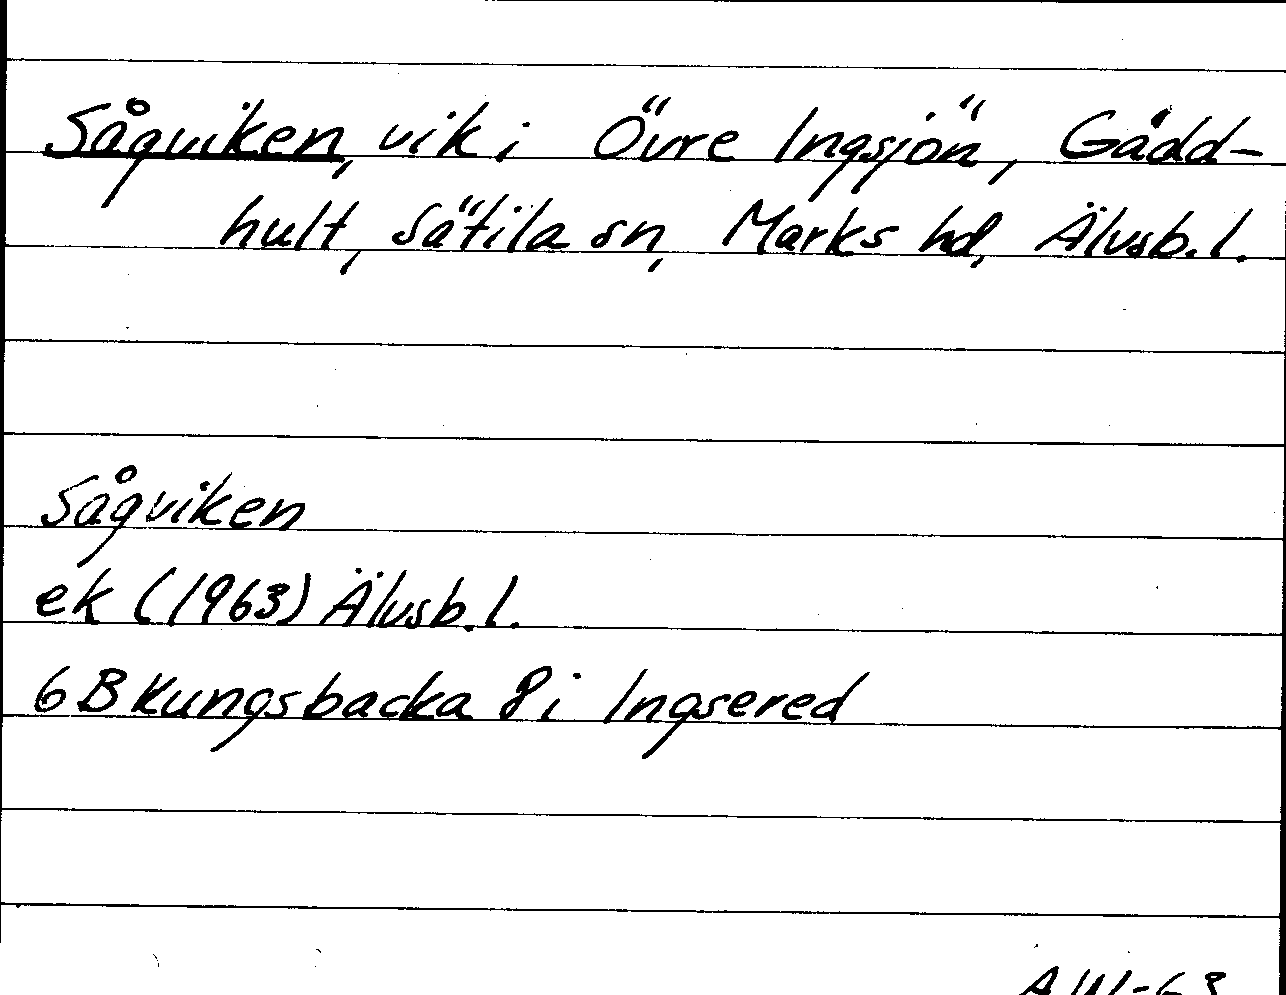 Sågviken, vik i Övre Ingsjön, Gädd-
hult, Sätila sn, Marks hd, Älvsb.l.
Sågviken
ek (1963) Älvsb.l.
6B Kungsbacka 8i Ingsered